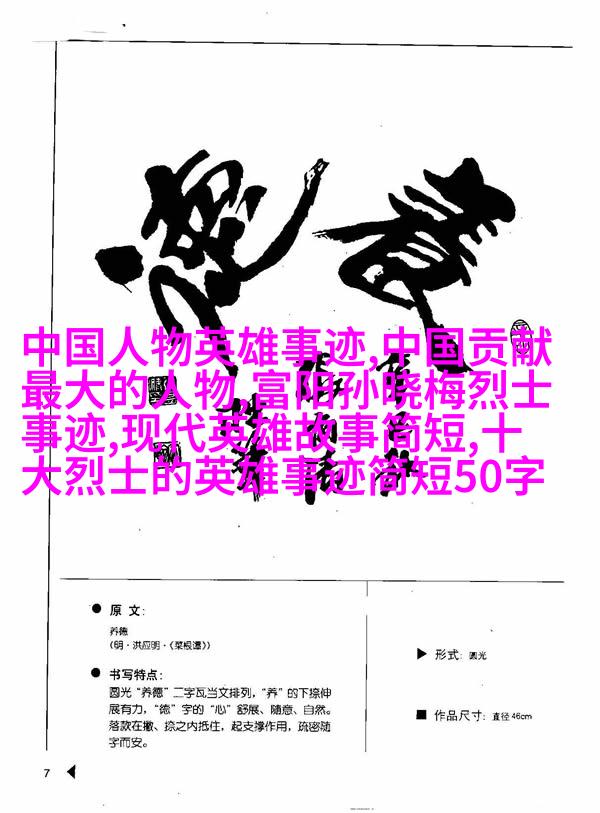 養德
中国人物英雄事迹,中国贡献
最大的人物,富阳孙晓梅烈士
事迹,现代英雄故事简短,十
大烈士的英雄事迹简短50字
● 原 文:
养德
(明·洪应明·《菜根谭》)
● 书写特点:
圆光“养德”二字瓦当文排列,“养”的下捺伸
展有力,“德”字的“心”舒展、随意、自然。
落款在撇、捺之内抵住,起支撑作用,疏密随
字而安。
▶ 形式: 圆光
■ 作品尺寸: 直径46cm
7